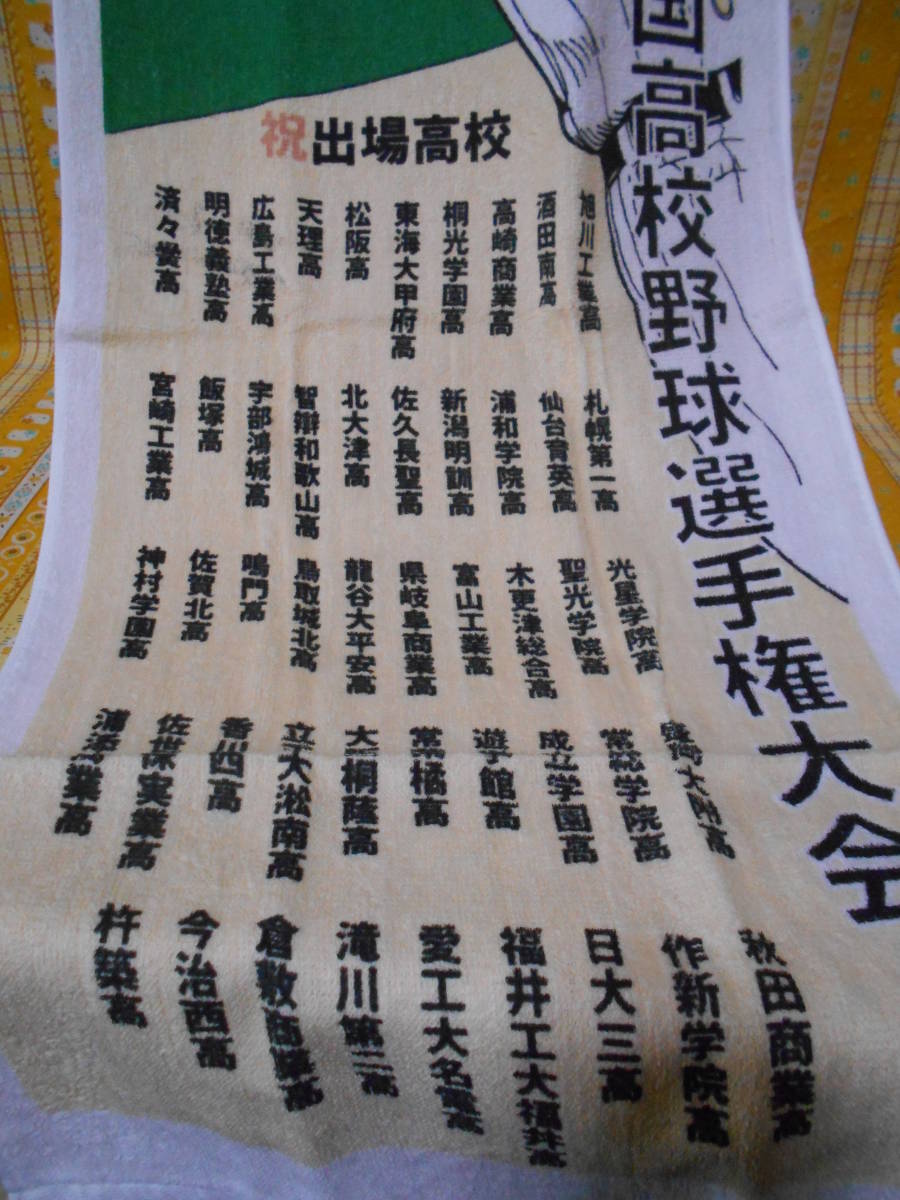 国高校野球選手権大会
祝出場高校
旭川工業高
酒田南高
高崎商業高
桐光学園高
東海大甲府高
松阪高
天理高
広島工業高
明徳義塾高
済々黌高
札幌第一高
仙台育英高
浦和学院高
新潟明訓高
佐久長聖高
北大津高
智辯和歌山高
宇部鴻城高
飯塚高
宮崎工業高
光星学院高
聖光学院高
木更津総合高
富山工業高
県岐阜商業高
龍谷大平安高
鳥取城北高
鳴門高
佐賀北高
神村学園高
盛岡大附高
常総学院高
成立学園高
遊学館高
常葉橘高
大阪桐蔭高
立正大淞南高
香川西高
佐世保実業高
浦添商業高
秋田商業高
作新学院高
日大三高
福井工大福井高
愛工大名電高
滝川第二高
倉敷商業高
今治西高
杵築高